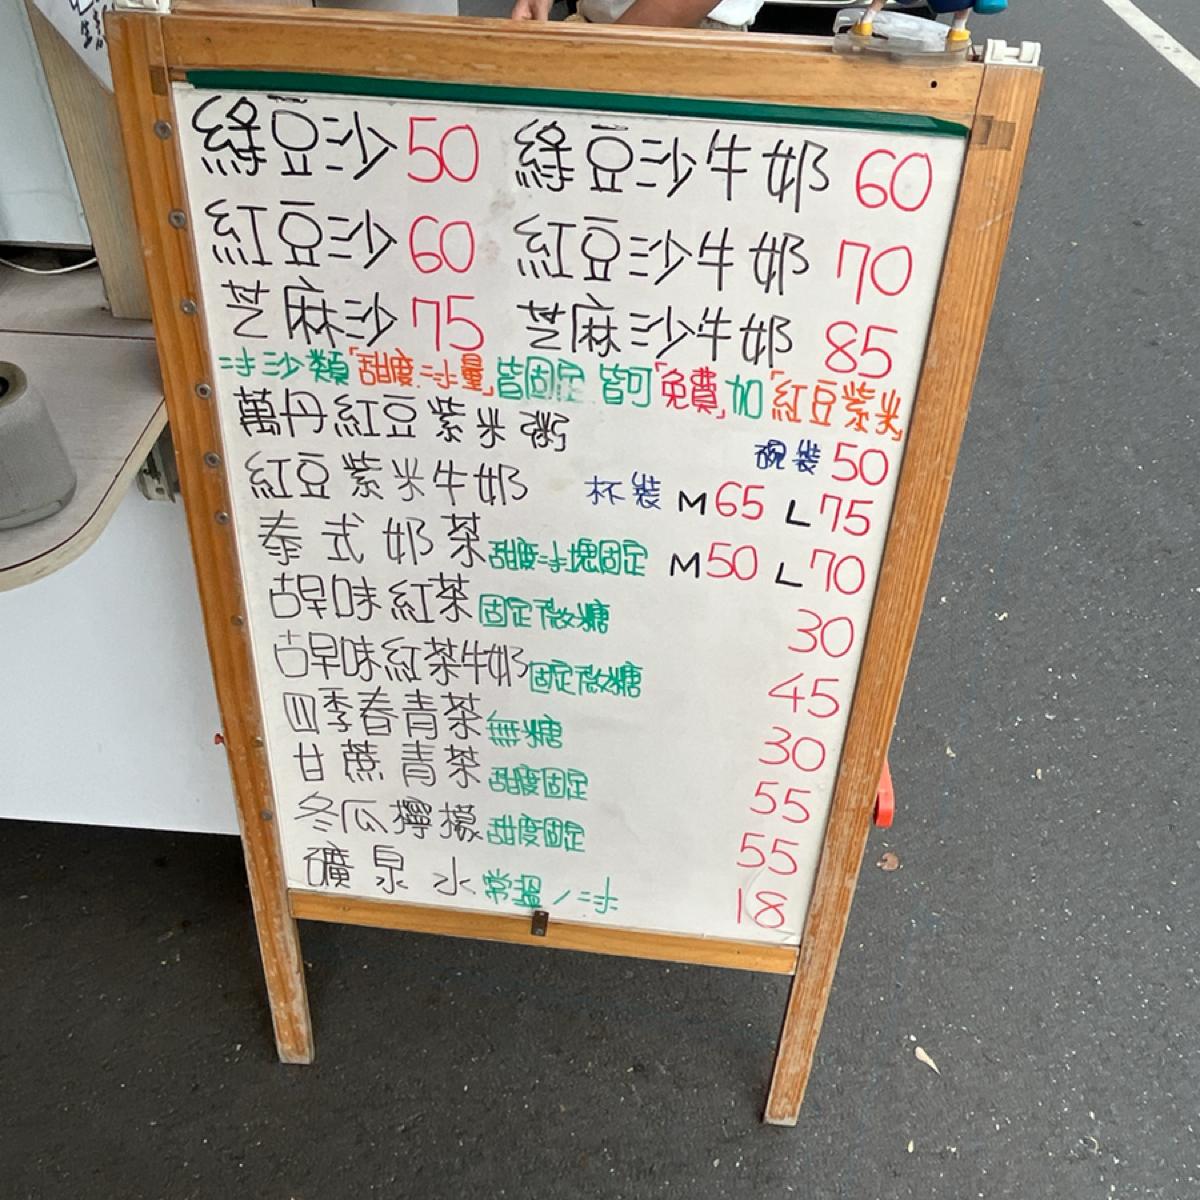 綠豆沙 50 綠豆沙牛奶 60
紅豆沙 60 紅豆沙牛奶 70
芝麻沙 75 芝麻沙牛奶 85
冰沙類「甜度冰量」皆固定 皆可「免費」加「紅豆紫米」
萬丹紅豆紫米粥 碗裝 50
紅豆紫米牛奶 杯裝 M65 L75
泰式奶茶 甜度冰塊固定 M50 L70
古早味紅茶 固定微糖 30
古早味紅茶牛奶 固定微糖 45
四季春青茶 無糖 30
甘蔗青茶 甜度固定 55
冬瓜檸檬 甜度固定 55
礦泉水 常溫/冰 18